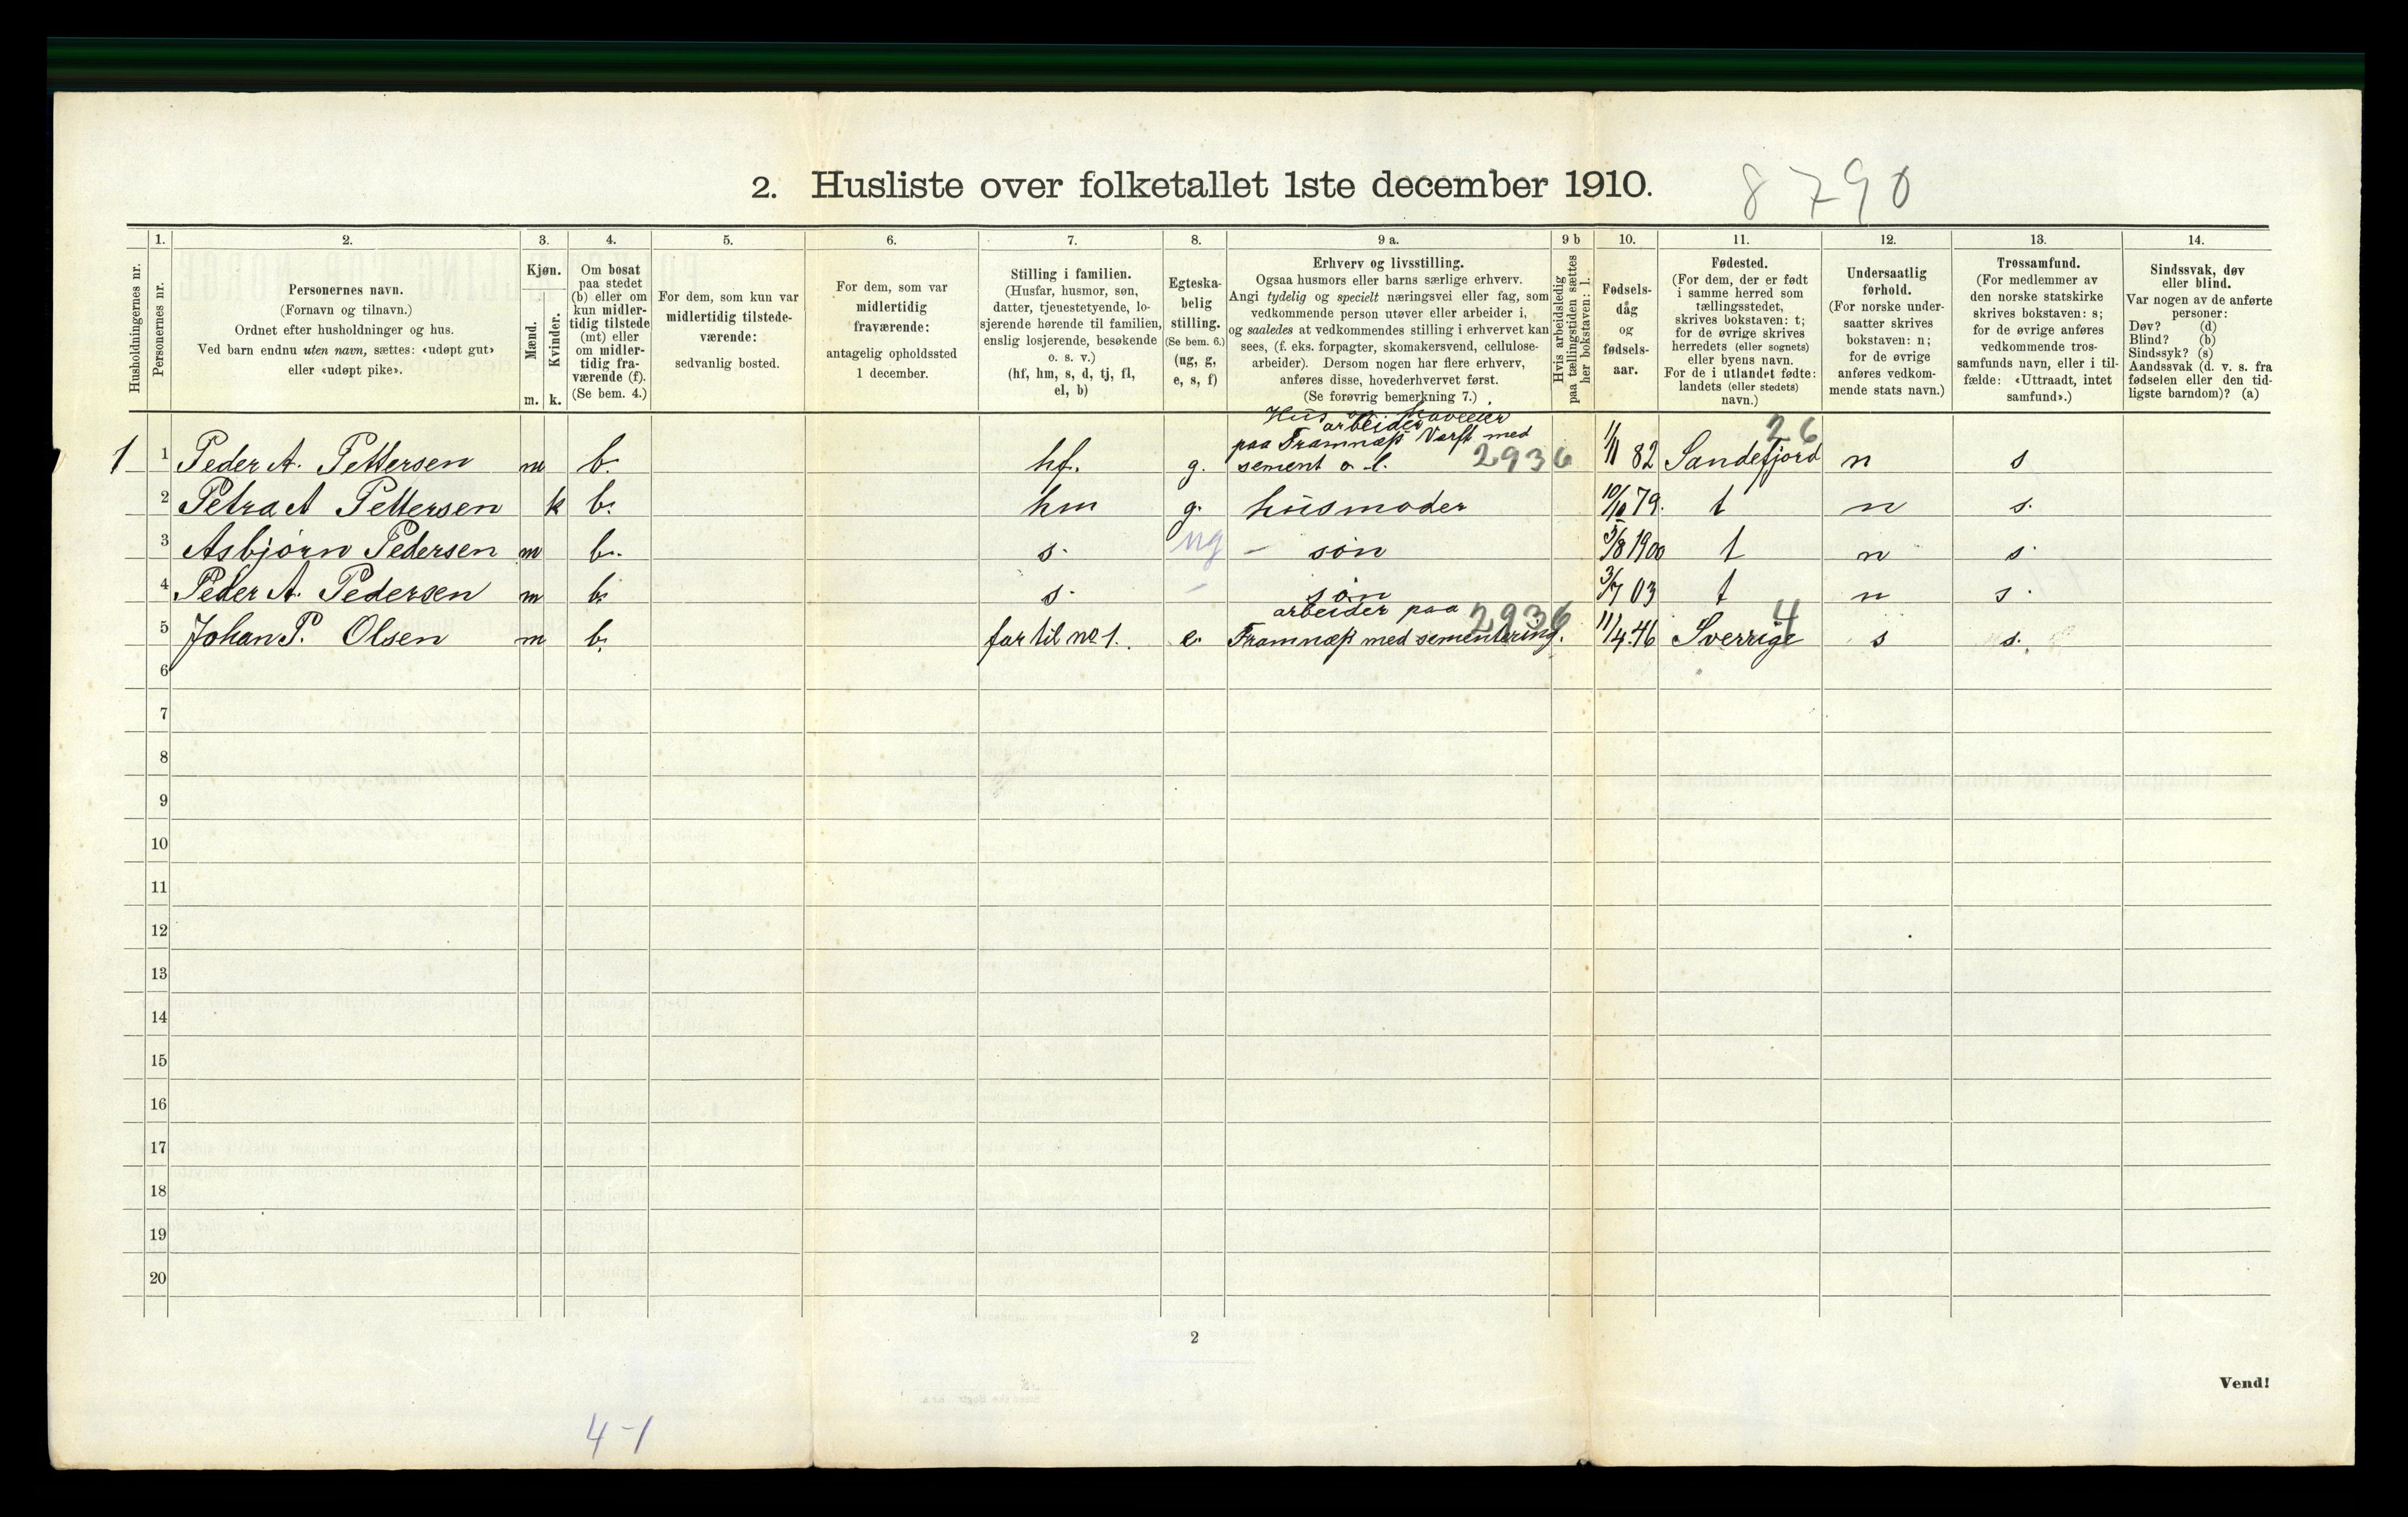 2. Husliste over folketallet 1ste december 1910.
8790
Husholdningernes nr.
1.
Personernes nr.
2.
Personernes navn.
(Fornavn og tilnavn.)
Ordnet efter husholdninger og hus.
Ved barn endnu uten navn, sættes: «udøpt gut»
eller «udøpt pike».
3.
Kjøn.
Mænd.
Kvinder.
m. k.
4.
Om bosat
paa stedet
(b) eller om
kun midler-
tidig tilstede
(mt) eller
om midler-
tidig fra-
værende (f).
(Se bem. 4.)
5.
For dem, som kun var
midlertidig tilstede-
værende:
sedvanlig bosted.
6.
For dem, som var
midlertidig
fraværende:
antagelig opholdssted
1 december.
7.
Stilling i familien.
(Husfar, husmor, søn,
datter, tjenestetyende, lo-
sjerende hørende til familien,
enslig losjerende, besøkende
o. s. v.)
(hf, hm, s, d, tj, fl,
el, b)
8.
Egteska-
belig
stilling.
(Se bem. 6.)
(ug, g,
e, s, f)
9 a.
Erhverv og livsstilling.
Ogsaa husmors eller barns særlige erhverv.
Angi tydelig og specielt næringsvei eller fag, som
vedkommende person utøver eller arbeider i,
og saaledes at vedkommendes stilling i erhvervet kan
sees, (f. eks. forpagter, skomakersvend, cellulose-
arbeider). Dersom nogen har flere erhverv,
anføres disse, hovederhvervet først.
(Se forøvrig bemerkning 7.)
9 b
Hvis arbeidsledig
paa tællingstiden sættes
her bokstaven: l.
10.
Fødsels-
dag
og
fødsels-
aar.
11.
Fødested.
(For dem, der er født
i samme herred som
tællingsstedet,
skrives bokstaven: t;
for de øvrige skrives
herredets (eller sognets)
eller byens navn.
For de i utlandet fødte:
landets (eller stedets)
navn.)
12.
Undersaatlig
forhold.
(For norske under-
saatter skrives
bokstaven: n;
for de øvrige
anføres vedkom-
mende stats navn.)
13.
Trossamfund.
(For medlemmer av
den norske statskirke
skrives bokstaven: s;
for de øvrige anføres
vedkommende tros-
samfunds navn, eller i til-
fælde: «Uttraadt, intet
samfund».)
14.
Sindssvak, døv
eller blind.
Var nogen av de anførte
personer:
Døv? (d)
Blind? (b)
Sindssyk? (s)
Aandssvak (d. v. s. fra
fødselen eller den tid-
ligste barndom)? (a)
Hus og haveeier
arbeider
paa Framnæss Værft med
26
1 1 Peder A. Pettersen m b. hf. g. sement o. l. 2936 1/11 82 Sandefjord n s
2 Petra A Pettersen k b. hm g. husmoder 10/10 79. t n s.
3 Asbjørn Pedersen m b. s. ug – søn 5/8 1900 t n s.
4 Peder A. Pedersen m b. s. – søn 3/7 03 t n s.
arbeider paa 2936 4
5 Johan P. Olsen m b. far til no 1. e. Framnæss med sementering. 11/4.46 Sverrige s s.
6
7
8
9
10
11
12
13
14
15
16
17
18
19
20
2
Vend!
4-1